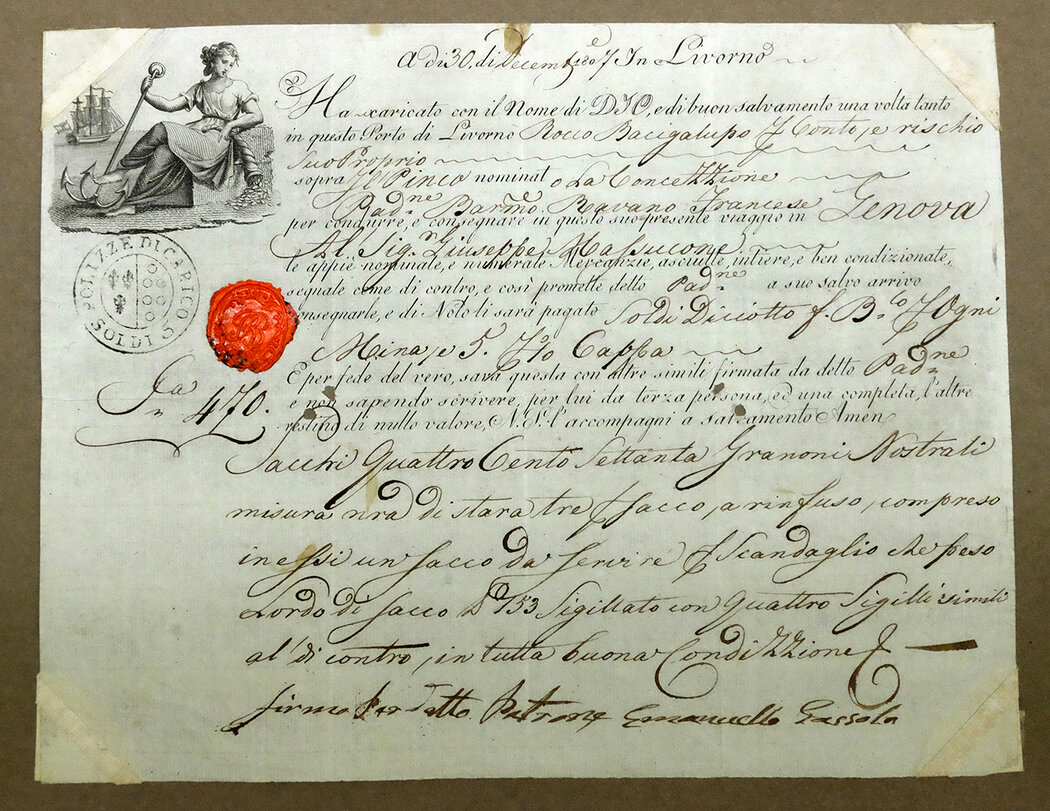 A di 30. di Decembre 1807 In Livorno
Ha xaricato con il Nome di DIO, e di buon salvamento una volta tanto
in questo Porto di Livorno Rocco Bacigalupo Conto, e rischio
suo Proprio
sopra Il Pinco nominato La Concezzione
Padne Barmeo Ravano Francese
per condurre, e consegnare in questo suo presente viaggio in Genova
Al Sig.r Giuseppe Massucone
le appiè nominale, e numerale Mercanzie, asciutte, intiere, e ben condizionate,
segnate come di contro, e così promette detto Padne a suo salvo arrivo
consegnarle, e di Nolo li sarà pagato Soldi Diciotto f. B.co Ogni
Mina, e 5. Cappa
E per fede del vero, sarà questa con altre simili firmata da detto Padne
e non sapendo scrivere, per lui da terza persona, ed una completa, l'altre
restino di nullo valore, N.S. l'accompagni a salvamento Amen
POLIZZE DI CARICO
SOLDI
470.
Sacchi Quattro Cento Settanta Granoni Nostrali
misura nra di stara tre sacco, a rinfuso, compreso
in essi un sacco da servire Scandaglio che peso
Lordo di sacco 153 Sigillato con Quattro Sigilli simili
al di contro, in tutta buona Condizzione
firmo per detto Patrone Emanuello Gassolo